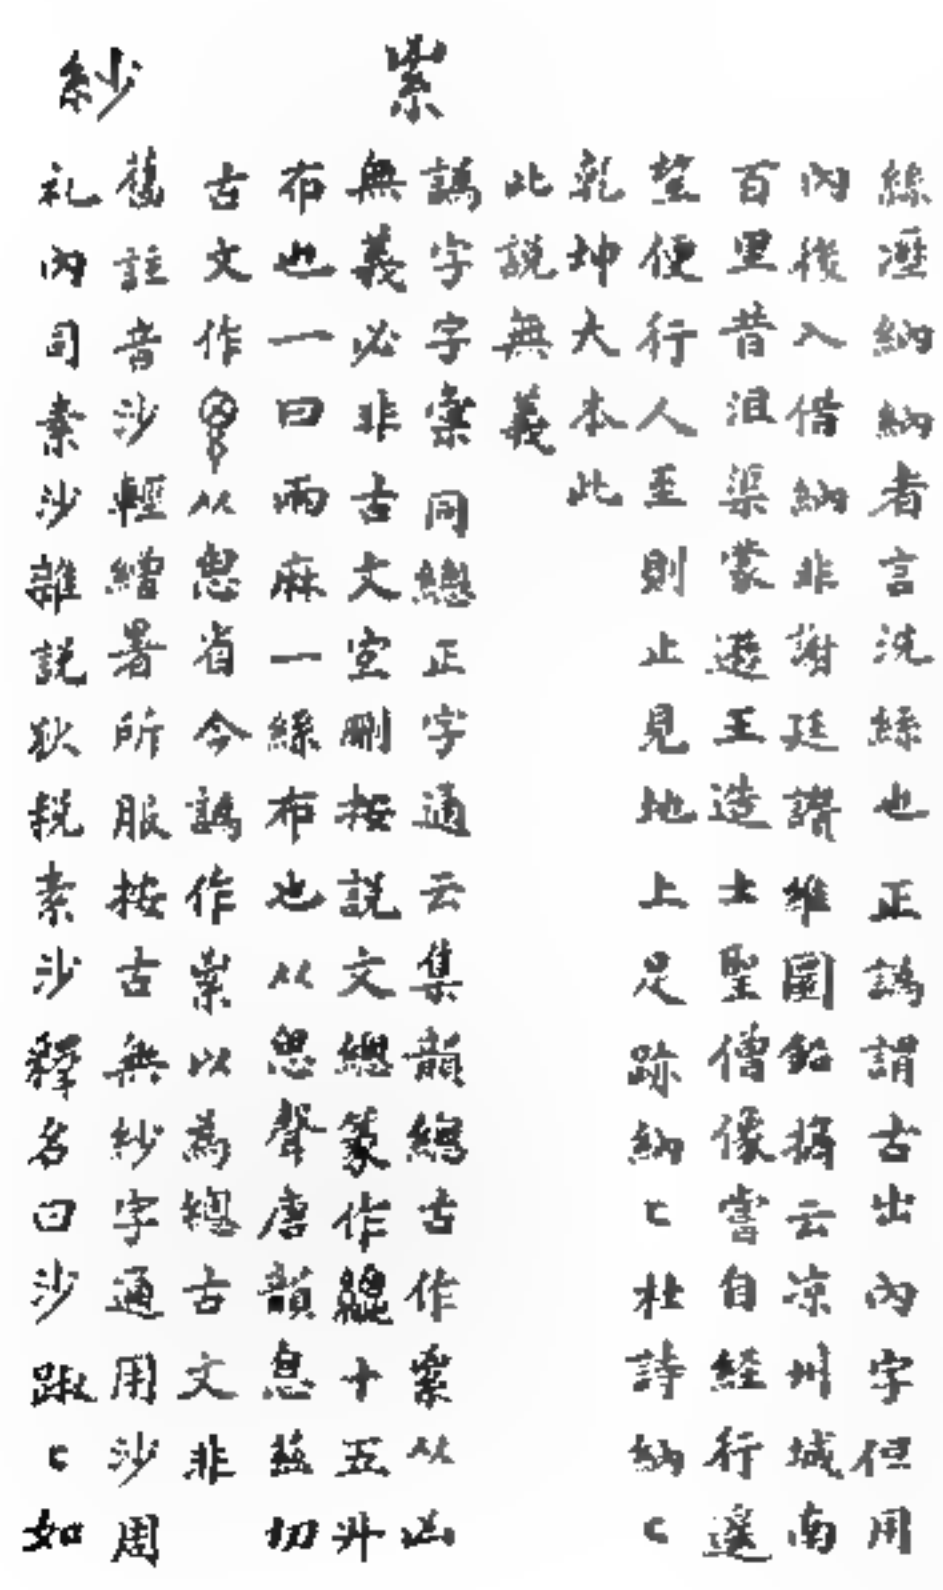 絲溼納納者言洗絲也正譌謂古出內字但用
內後入借納非謝廷讚維園鉛摘云凉州城南
百里昔沮渠蒙遜王造土聖僧像當自經行遥
望便行人至則止見地上足跡納匕杜詩納匕
乾坤大本此
此説無義
紥
譌字字彙同總正字通云集韻總古作紥从凶
無義必非古文宐刪按説文總篆作緫十五升
布也一曰兩麻一絲布也从悤聲唐韻息兹切
古文作 从悤省今譌作紥以為總古文非
紗
舊註音沙輕繒暑所服按古無紗字通用沙周
礼內司素沙雜説狄税素沙釋名曰沙踧匕如